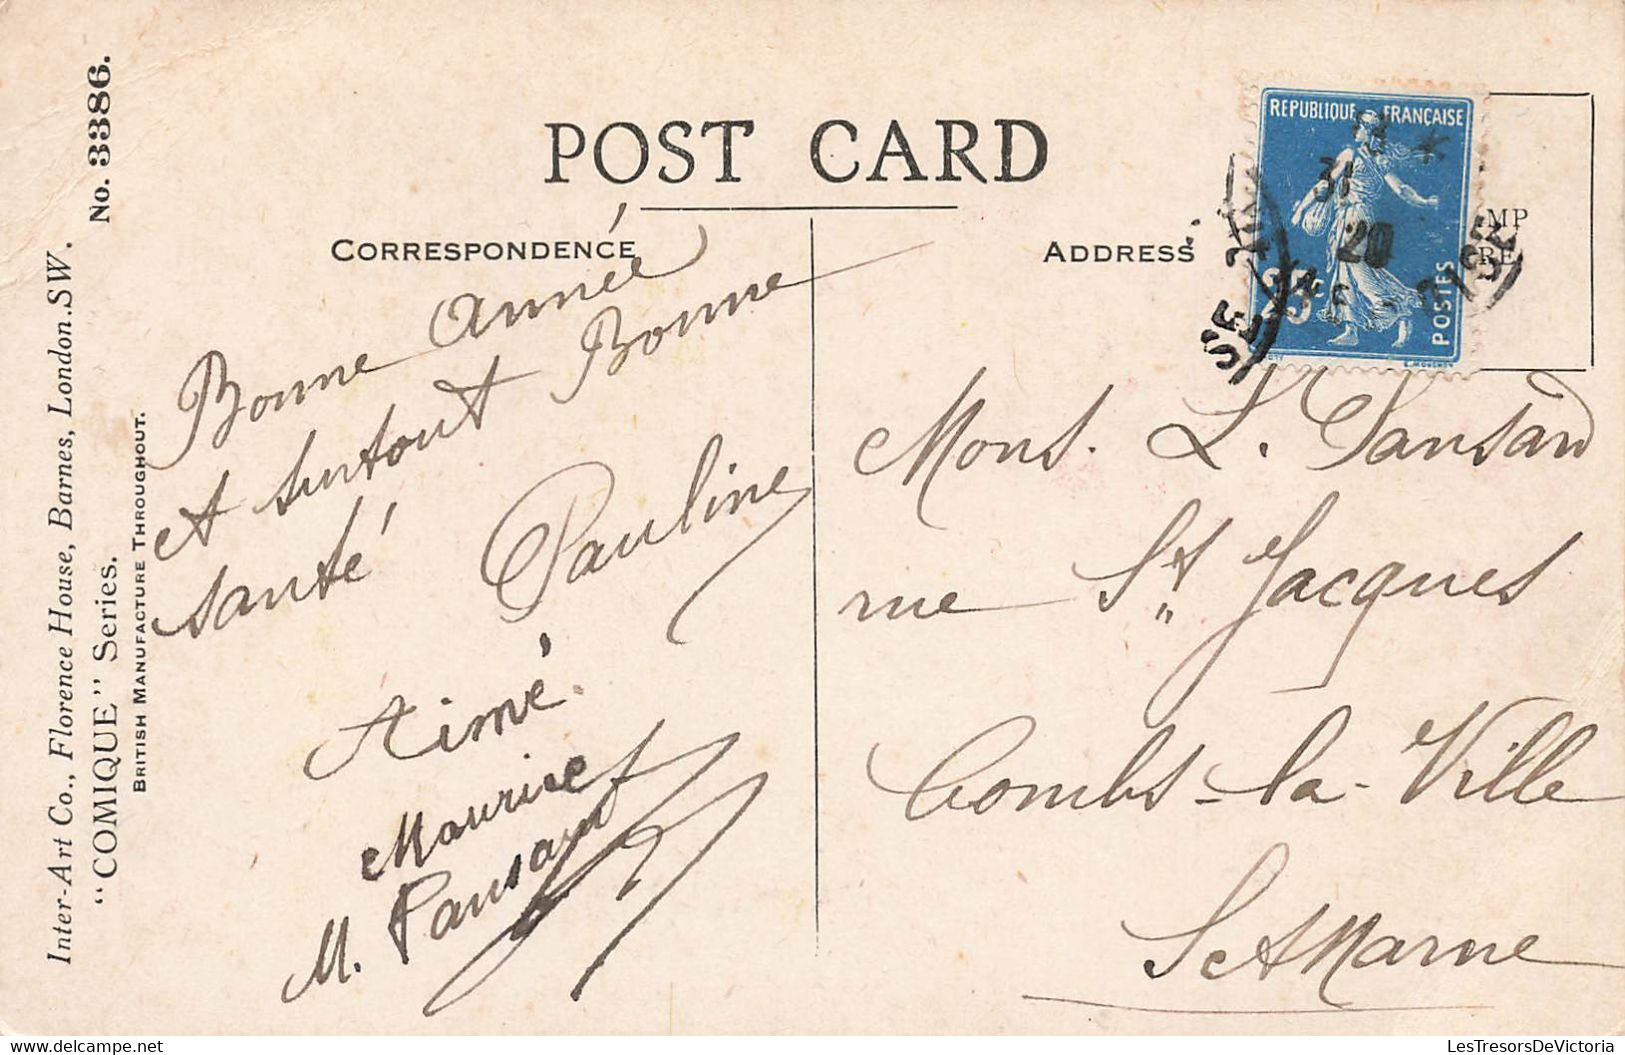 No. 3386.
Inter-Art Co., Florence House, Barnes, London.SW.
"COMIQUE" Series.
BRITISH MANUFACTURE THROUGHOUT.
POST CARD
CORRESPONDENCE
ADDRESS
REPUBLIQUE FRANÇAISE
POSTES
25c
31
20
MP
RE
Bonne Année
et surtout Bonne
santé
Pauline
Aimé.
Maurice
M. Pansard
Mons. L. Pansard
rue St Jacques
Combs-la-Ville
S et Marne
LesTresorsDeVictoria